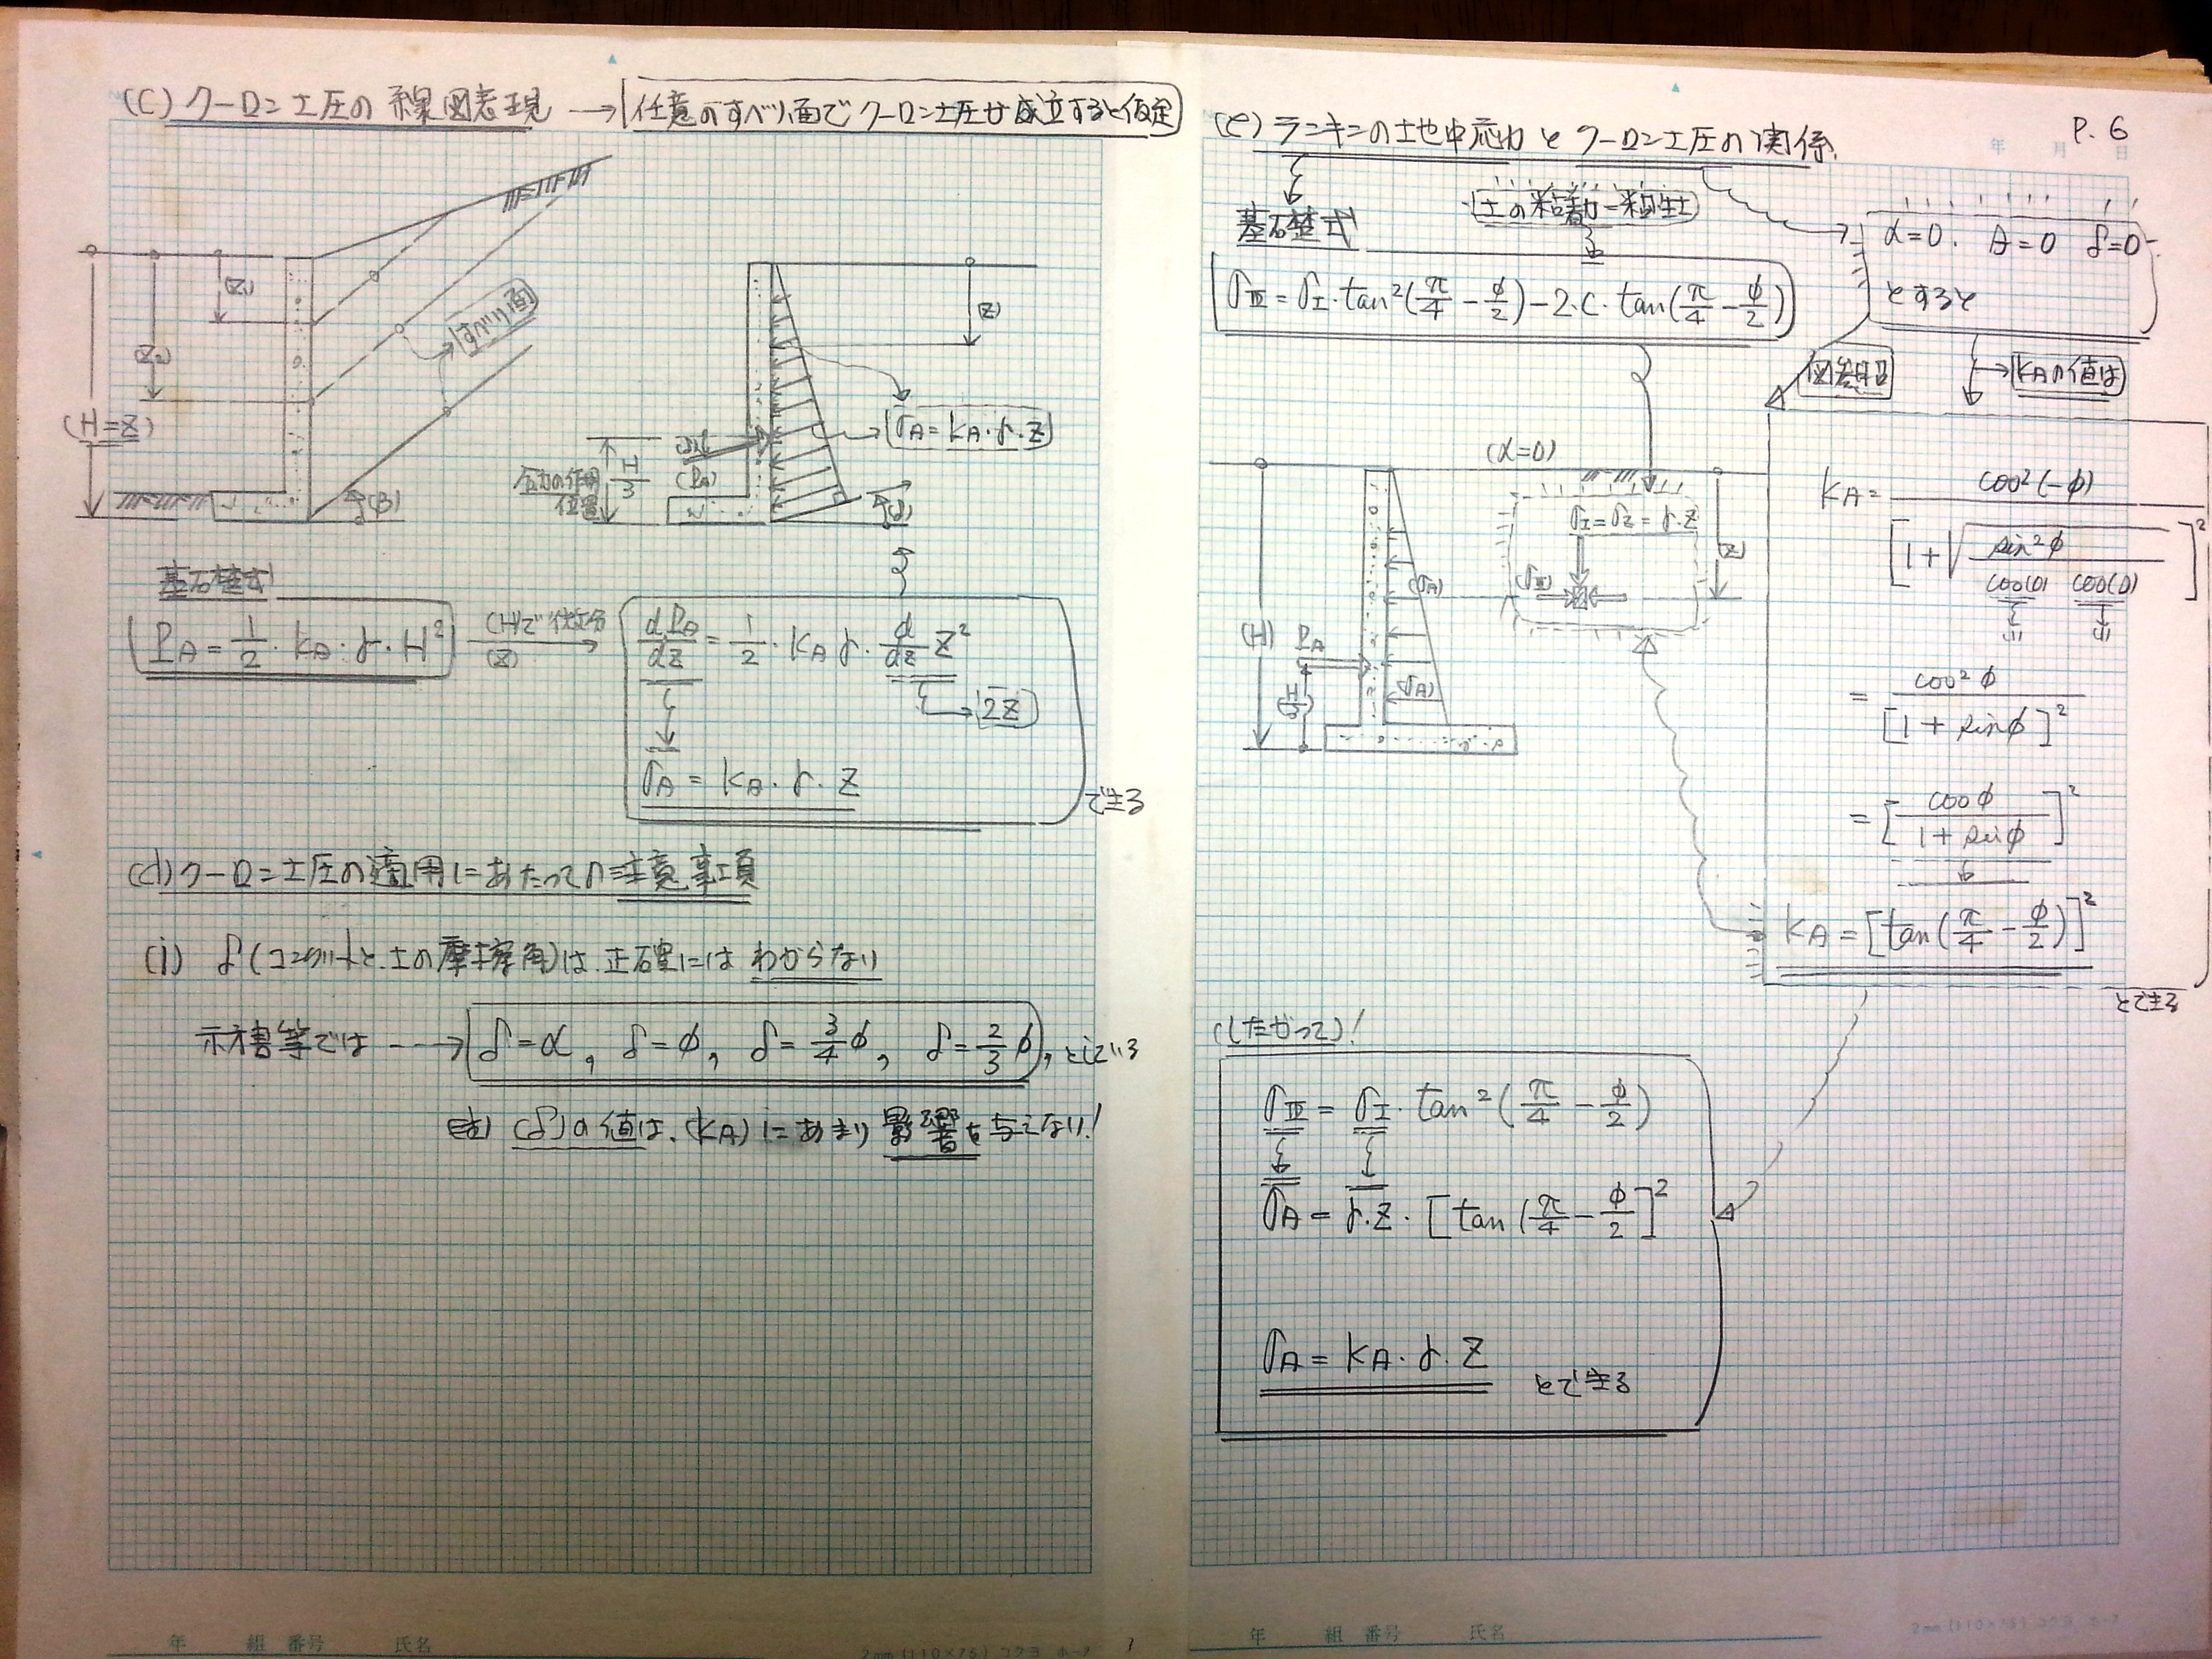 (C) クーロン土圧の線図表現 → 任意のすべり面でクーロン土圧が成立すると仮定
(Z₁)
(Z₂)
(H=Z)
すべり面
(β)
(Z)
σA = kA・γ・Z
H/3
(PA)
合力の作用
位置
(δ)
基礎式
PA = 1/2・kA・γ・H²
(H)で微分
(Z)
dPA/dZ = 1/2・kA γ・d/dZ Z²
2Z
σA = kA・γ・Z
できる
(d) クーロン土圧の適用にあたっての注意事項
(i) δ(コンクリートと土の摩擦角)は正確にはわからない
示方書等では ---→ δ=α, δ=φ, δ=3/4 φ, δ=2/3 φ, としている
(注) (δ)の値は、(kA)にあまり影響を与えない!
年 組 番号 氏名
2mm (110×75) コクヨ ホ-7
P. 6
年 月 日
(e) ランキンの地中応力とクーロン土圧の関係
基礎式
土の粘着力-粘性土
α=0. θ=0 δ=0
とすると
σⅢ = σI・tan²(π/4 - φ/2) - 2・C・tan(π/4 - φ/2)
図参照
kAの値は
(α=0)
σI = σZ = γ・Z
(Z)
(σⅢ)
(σA)
(H)
PA
(H/3)
(σA)
kA = cos²(-φ) / [1 + √(sin²φ / cos(0) cos(0))]²
= cos²φ / [1 + sinφ]²
= [cosφ / 1 + sinφ]²
kA = [tan(π/4 - φ/2)]²
とできる
(したがって)!
σⅢ = σI・tan²(π/4 - φ/2)
σA = γ・Z・[tan(π/4 - φ/2]²
σA = kA・γ・Z
とできる
年 組 番号 氏名
2mm (110×75) コクヨ ホ-7